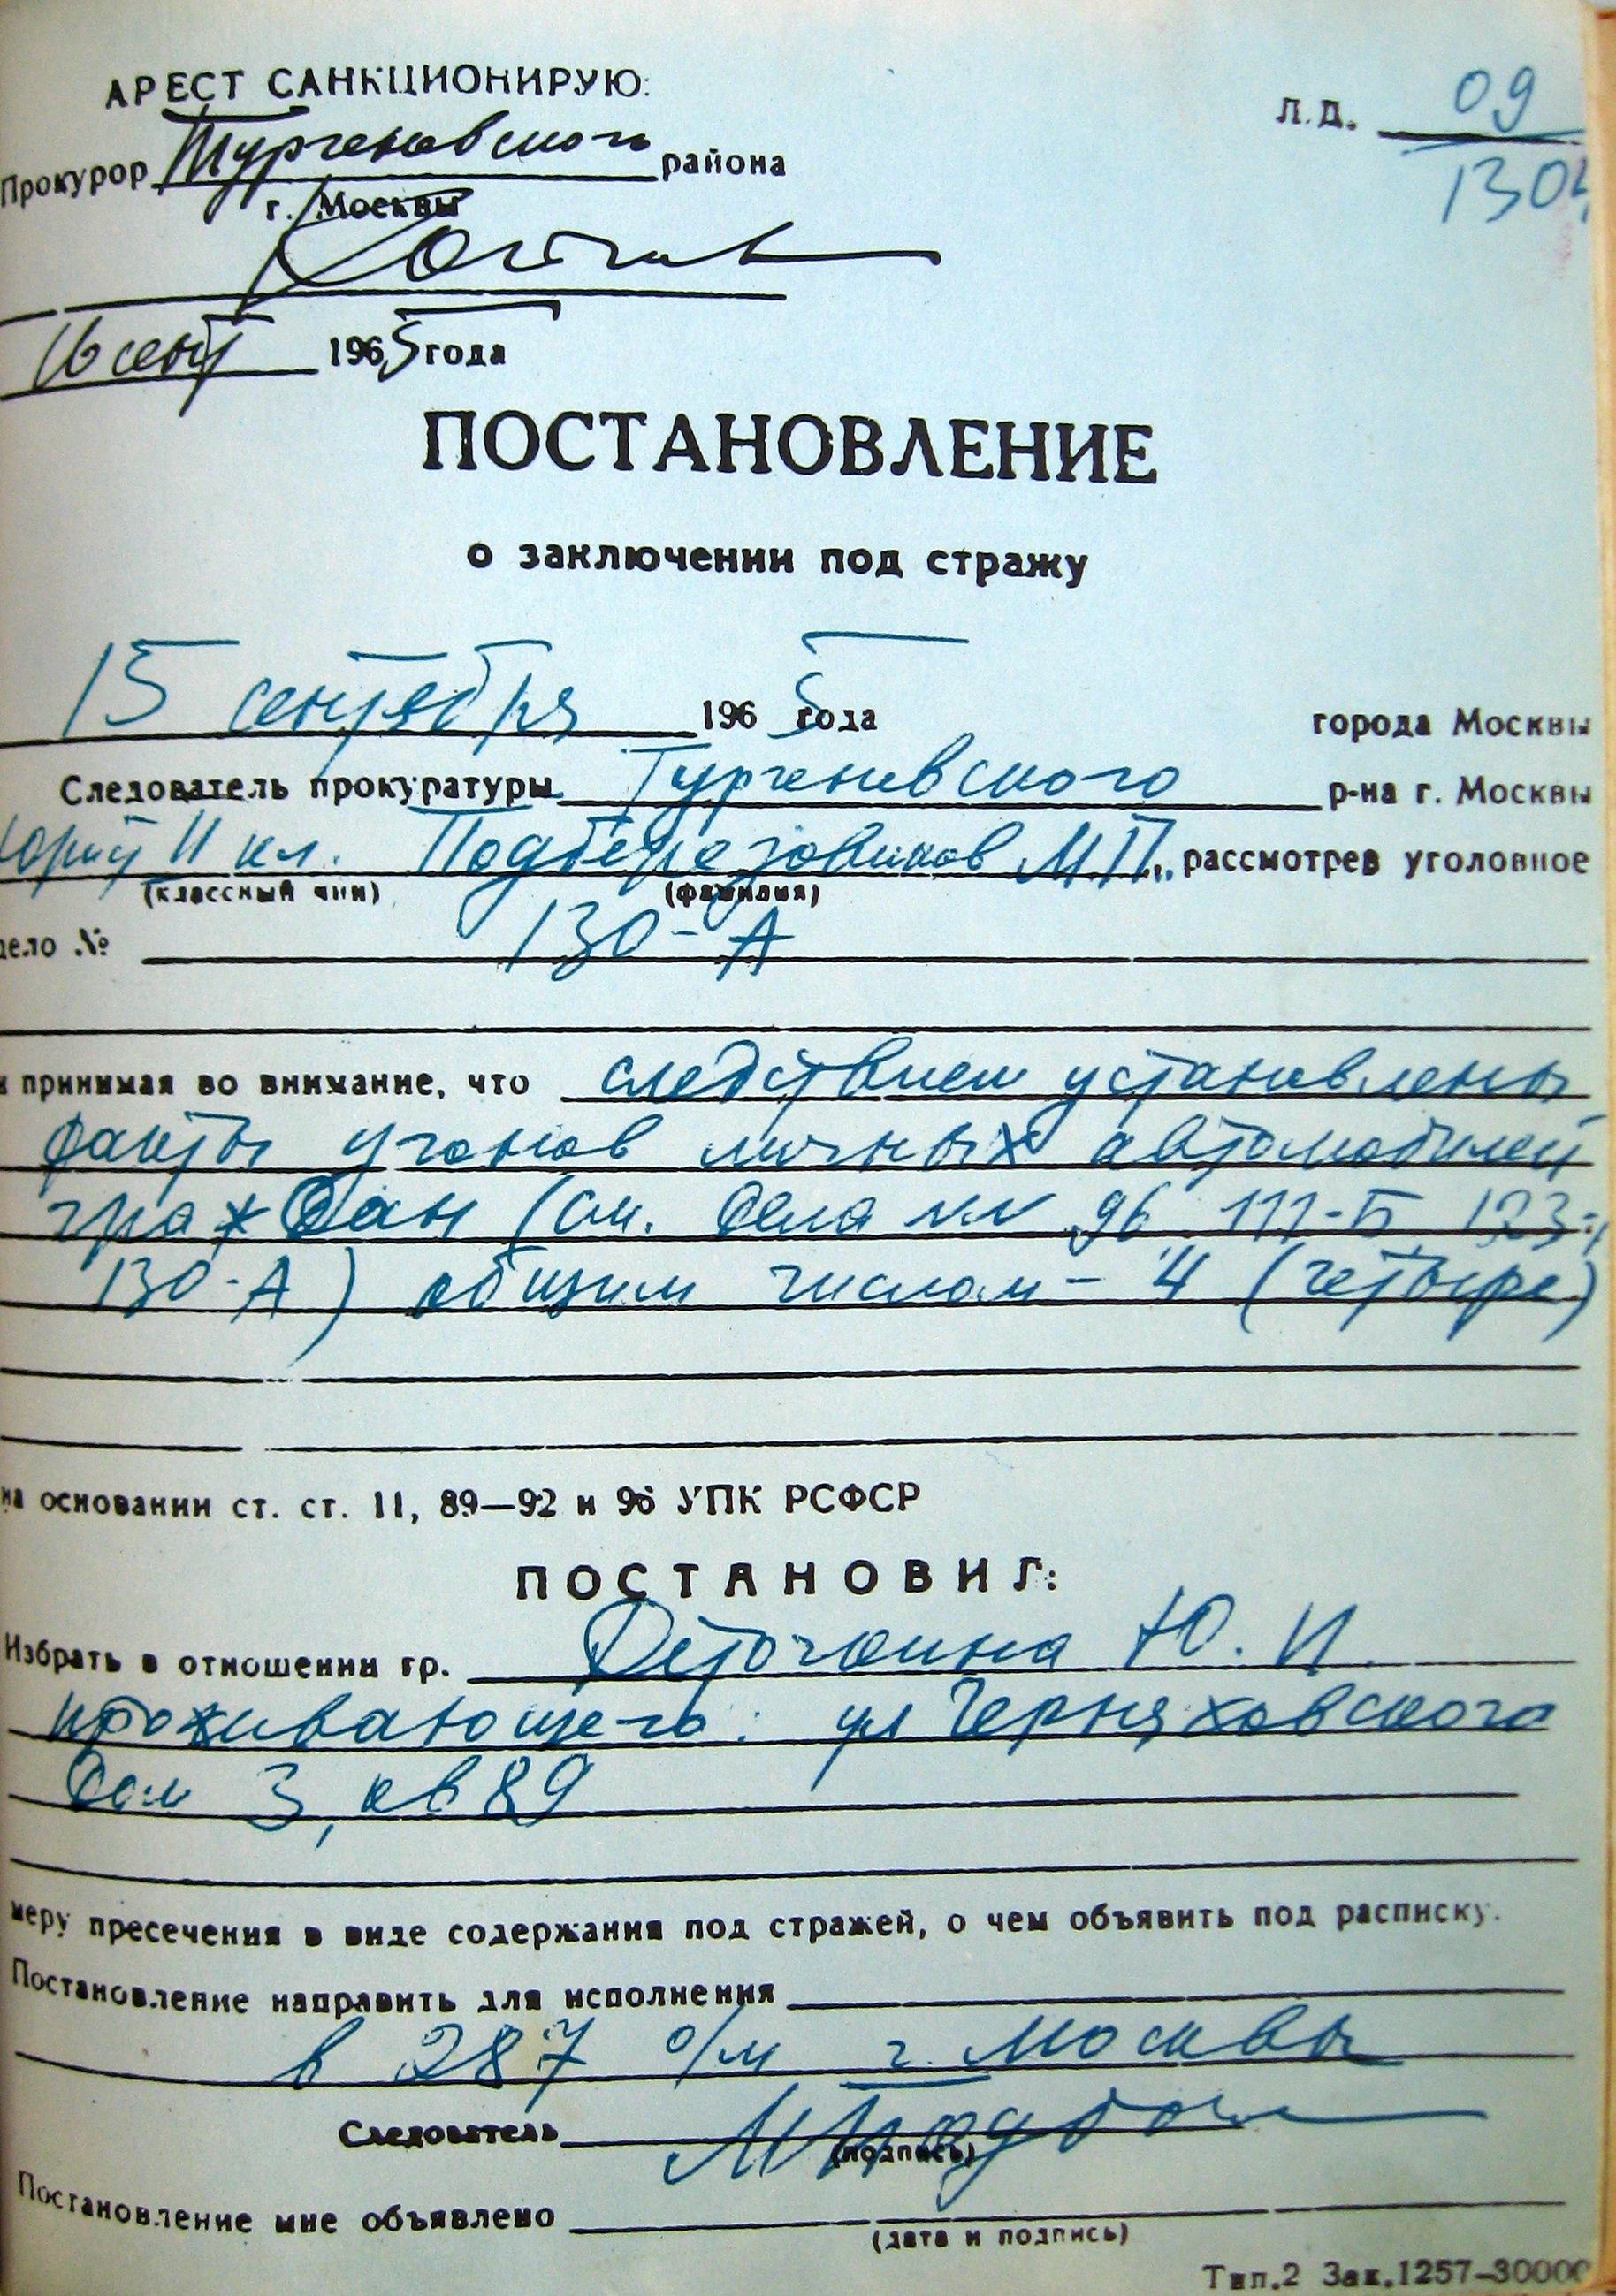 АРЕСТ САНКЦИОНИРУЮ:
Л.Д. 09
Прокурор Тургеневского района
130
г. Москвы
16 сент 1965 года
ПОСТАНОВЛЕНИЕ
о заключении под стражу
15 сентября 1965 года города Москвы
Следователь прокуратуры Тургеневского р-на г. Москвы
юрист II кл. Подберезовиков М.П., рассмотрев уголовное
(классный чин) (фамилия)
дело № 130-А
и принимая во внимание, что следствием установлены
факты угонов личных автомобилей
граждан (см. дела NN 96, 111-Б, 123-
130-А) общим числом - 4 (четыре)
на основании ст. ст. 11, 89—92 и 96 УПК РСФСР
ПОСТАНОВИЛ:
Избрать в отношении гр. Деточкина Ю. И.
проживающего: ул Черняховского
дом 3, кв 89
меру пресечения в виде содержания под стражей, о чем объявить под расписку.
Постановление направить для исполнения
в 287 о/м г. Москвы
Следователь
(подпись)
Постановление мне объявлено
(дата и подпись)
Тип.2 Зак.1257—30000